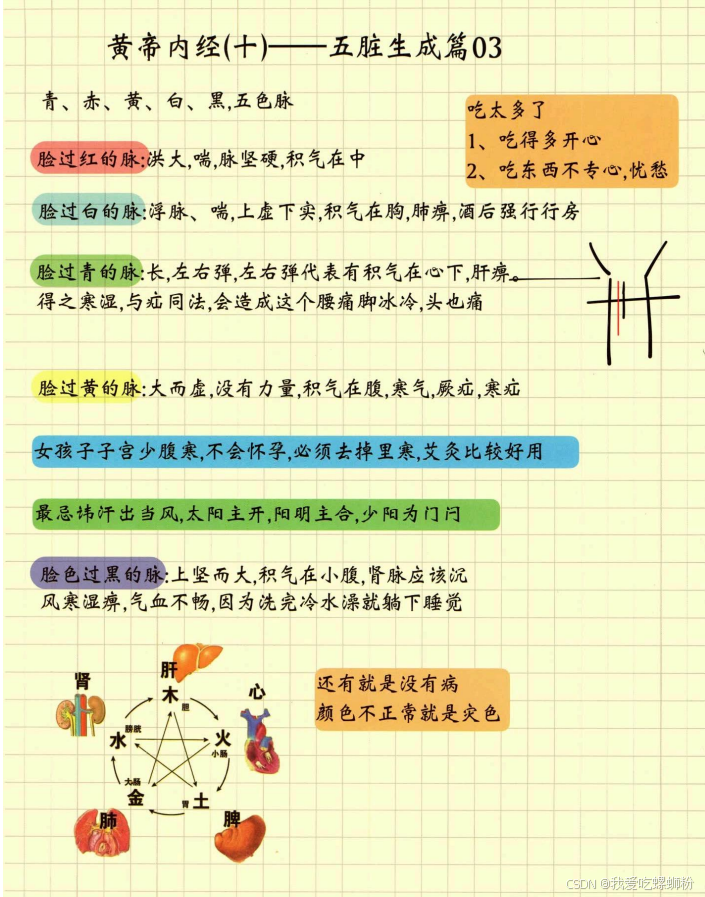 黄帝内经(十)——五脏生成篇03
青、赤、黄、白、黑,五色脉
吃太多了
1、吃得多开心
2、吃东西不专心,忧愁
脸过红的脉:洪大,喘,脉坚硬,积气在中
脸过白的脉:浮脉、喘,上虚下实,积气在胸,肺痹,酒后强行行房
脸过青的脉:长,左右弹,左右弹代表有积气在心下,肝痹。
得之寒湿,与疝同法,会造成这个腰痛脚冰冷,头也痛
脸过黄的脉:大而虚,没有力量,积气在腹,寒气,厥疝,寒疝
女孩子子宫少腹寒,不会怀孕,必须去掉里寒,艾灸比较好用
最忌讳汗出当风,太阳主开,阳明主合,少阳为门闩
脸色过黑的脉:上坚而大,积气在小腹,肾脉应该沉
风寒湿痹,气血不畅,因为洗完冷水澡就躺下睡觉
还有就是没有病
颜色不正常就是灾色
肝
木
胆
肾
心
水
膀胱
火
小肠
大肠
金
胃
土
肺
脾
CSDN @我爱吃螺蛳粉